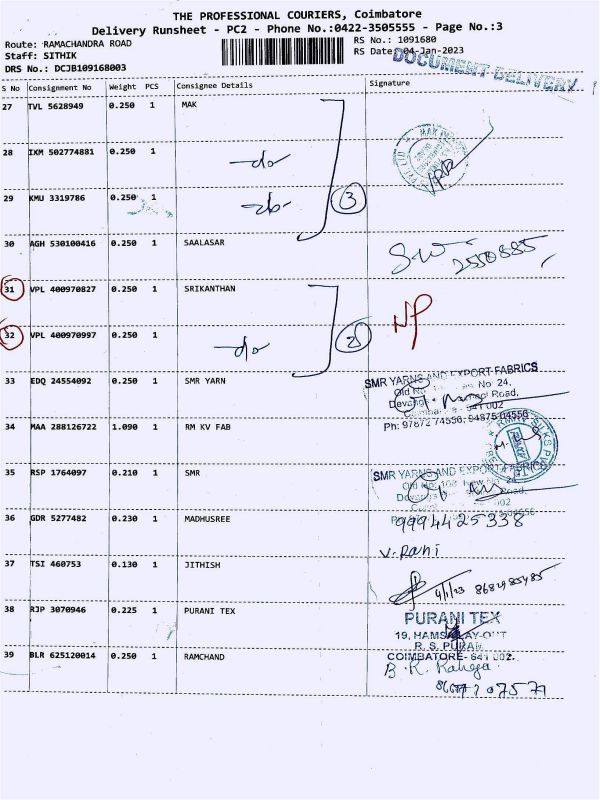 THE PROFESSIONAL COURIERS, Coimbatore
Delivery Runsheet - PC2 - Phone No.:0422-3505555 - Page No.:3
Route: RAMACHANDRA ROAD
RS No.: 1091680
Staff: SITHIK
RS Date: 04-Jan-2023
DRS No.: DCJB109168003
DOCUMENT DELIVERY
S No Consignment No Weight PCS Consignee Details Signature
27 TVL 5628949 0.250 1 MAK
28 IKM 502774881 0.250 1 -do-
29 KMU 3319786 0.250 1 -do- 3
30 AGH 530100416 0.250 1 SAALASAR
2550885
31 VPL 400970827 0.250 1 SRIKANTHAN NP
32 VPL 400970997 0.250 1 -do- 2
33 EDQ 24554092 0.250 1 SMR YARN
SMR YARNS AND EXPORT FABRICS
No 24,
Road,
641 002
Ph: 97872 74556, 94875 04556
34 MAA 288126722 1.090 1 RM KV FAB
35 RSP 1764097 0.210 1 SMR
SMR YARNS AND EXPORT FABRICS
Road,
36 GDR 5277482 0.230 1 MADHUSREE
9994425338
V. Rani
37 TSI 460753 0.130 1 JITHISH
4/1/23 8682985485
38 RJP 3070946 0.225 1 PURANI TEX
PURANI TEX
R. S. PURAM
COIMBATORE- 641 002.
39 BLR 625120014 0.250 1 RAMCHAND
B. K.